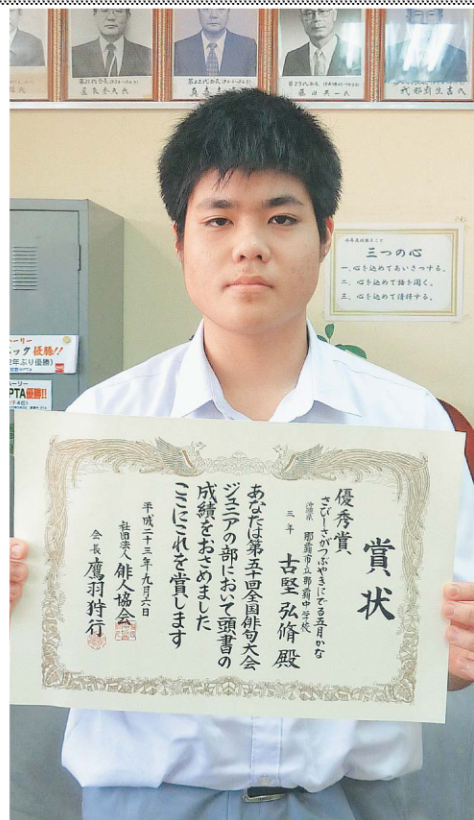 三つの心
一、心を込めてあいさつする。
二、心を込めて話を聞く。
三、心を込めて清掃する。
優勝!!
2年ぶり優勝)
PTA優勝!!
賞状
優秀賞
さびーさがつぶやきにでる五月かな
沖縄県 那覇市立那覇中学校
三年 古堅弘脩殿
あなたは第五十回全国俳句大会
ジュニアの部において頭書の
成績をおさめました
ここにこれを賞します
平成二十三年九月六日
社団法人 俳人協会
会長 鷹羽狩行